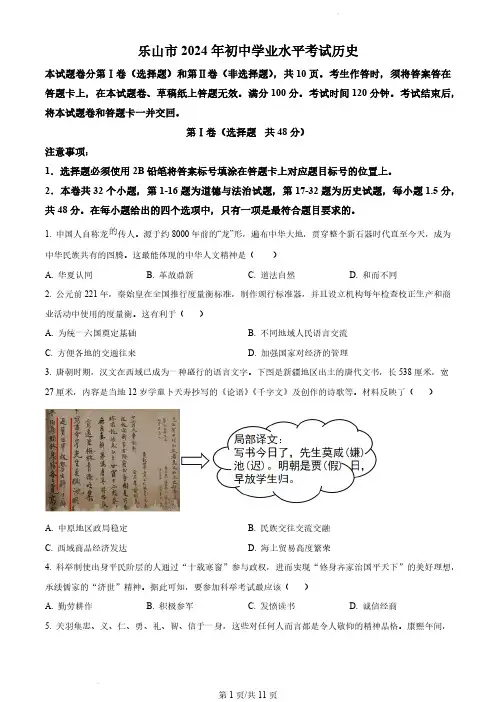 乐山市2024年初中学业水平考试历史
本试题卷分第Ⅰ卷（选择题）和第Ⅱ卷（非选择题），共10页。考生作答时，须将答案答在
答题卡上，在本试题卷、草稿纸上答题无效。满分100分。考试时间120分钟。考试结束后，
将本试题卷和答题卡一并交回。
第Ⅰ卷（选择题 共48分）
注意事项：
1．选择题必须使用2B铅笔将答案标号填涂在答题卡上对应题目标号的位置上。
2．本卷共32个小题，第1-16题为道德与法治试题，第17-32题为历史试题，每小题1.5分，
共48分。在每小题给出的四个选项中，只有一项是最符合题目要求的。
1. 中国人自称龙的传人。源于约8000年前的“龙”形，遍布中华大地，贯穿整个新石器时代直至今天，成为
中华民族共有的图腾。这最能体现的中华人文精神是（ ）
A. 华夏认同 B. 革故鼎新 C. 道法自然 D. 和而不同
2. 公元前221年，秦始皇在全国推行度量衡标准，制作颁行标准器，并且设立机构每年检查校正生产和商
业活动中使用的度量衡。这有利于（ ）
A. 为统一六国奠定基础 B. 不同地域人民语言交流
C. 方便各地的交通往来 D. 加强国家对经济的管理
3. 唐朝时期，汉文在西域已成为一种盛行的语言文字。下图是新疆地区出土的唐代文书，长538厘米，宽
27厘米，内容是当地12岁学童卜天寿抄写的《论语》《千字文》及创作的诗歌等。材料反映了（ ）
局部译文：
写书今日了，先生莫咸(嫌)
池(迟)。明朝是贾(假)日，
早放学生归。
A. 中原地区政局稳定 B. 民族交往交流交融
C. 西域商品经济发达 D. 海上贸易高度繁荣
4. 科举制使出身平民阶层的人通过“十载寒窗”参与政权，进而实现“修身齐家治国平天下”的美好理想，
承续儒家的“济世”精神。据此可知，要参加科举考试最应该（ ）
A. 勤劳耕作 B. 积极参军 C. 发愤读书 D. 诚信经商
5. 关羽集忠、义、仁、勇、礼、智、信于一身，这些对任何人而言都是令人敬仰的精神品格。康熙年间，
第1页/共11页